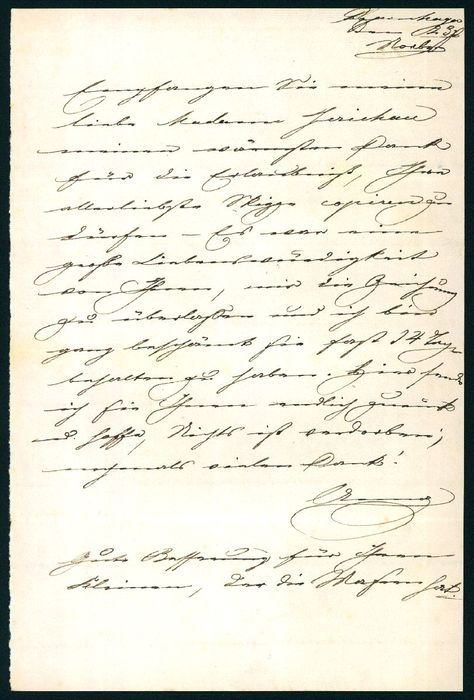 Kopenhagen
den
Novbr
Empfangen Sie meine
liebe Madame Jerichau
meinen wärmsten Dank
für die Erlaubniß, Ihre
allerliebste Skizze copiren zu
dürfen – Es war eine
große Liebenswürdigkeit
von Ihnen, mir die Zeichnung
zu überlassen und ich bin
ganz beschämt sie fast 14 Tage
behalten zu haben. Hier sende
ich sie Ihnen endlich zurück
u. hoffe, Nichts ist verdorben;
nochmals vielen Dank!
Gute Besserung für Ihren
Kleinen, der die Masern hat.